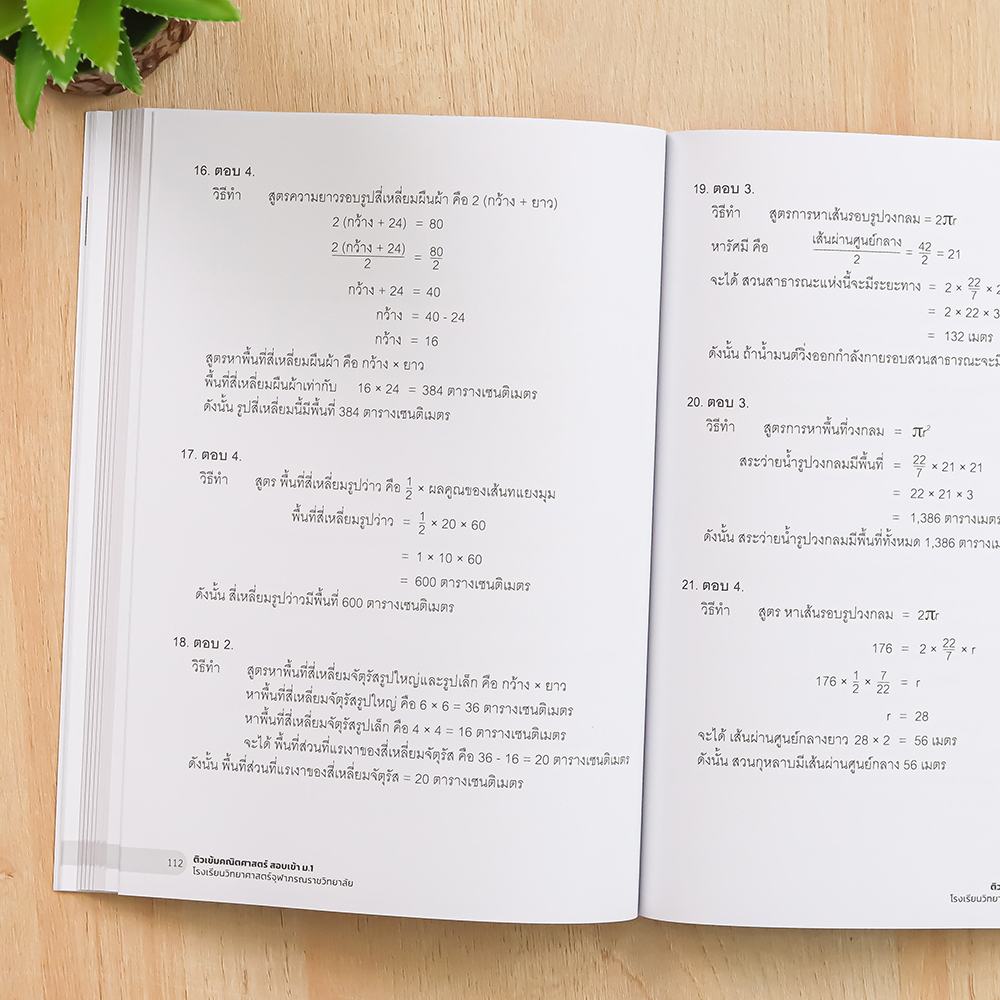 16. ตอบ 4.
วิธีทำ สูตรความยาวรอบรูปสี่เหลี่ยมผืนผ้า คือ 2 (กว้าง + ยาว)
2 (กว้าง + 24) = 80
2 (กว้าง + 24) / 2 = 80/2
กว้าง + 24 = 40
กว้าง = 40 - 24
กว้าง = 16
สูตรหาพื้นที่สี่เหลี่ยมผืนผ้า คือ กว้าง × ยาว
พื้นที่สี่เหลี่ยมผืนผ้าเท่ากับ 16 × 24 = 384 ตารางเซนติเมตร
ดังนั้น รูปสี่เหลี่ยมนี้มีพื้นที่ 384 ตารางเซนติเมตร
17. ตอบ 4.
วิธีทำ สูตร พื้นที่สี่เหลี่ยมรูปว่าว คือ 1/2 × ผลคูณของเส้นทแยงมุม
พื้นที่สี่เหลี่ยมรูปว่าว = 1/2 × 20 × 60
= 1 × 10 × 60
= 600 ตารางเซนติเมตร
ดังนั้น สี่เหลี่ยมรูปว่าวมีพื้นที่ 600 ตารางเซนติเมตร
18. ตอบ 2.
วิธีทำ สูตรหาพื้นที่สี่เหลี่ยมจัตุรัสรูปใหญ่และรูปเล็ก คือ กว้าง × ยาว
หาพื้นที่สี่เหลี่ยมจัตุรัสรูปใหญ่ คือ 6 × 6 = 36 ตารางเซนติเมตร
หาพื้นที่สี่เหลี่ยมจัตุรัสรูปเล็ก คือ 4 × 4 = 16 ตารางเซนติเมตร
จะได้ พื้นที่ส่วนที่แรเงาของสี่เหลี่ยมจัตุรัส คือ 36 - 16 = 20 ตารางเซนติเมตร
ดังนั้น พื้นที่ส่วนที่แรเงาของสี่เหลี่ยมจัตุรัส = 20 ตารางเซนติเมตร
112 ติวเข้มคณิตศาสตร์ สอบเข้า ม.1
โรงเรียนวิทยาศาสตร์จุฬาภรณราชวิทยาลัย
19. ตอบ 3.
วิธีทำ สูตรการหาเส้นรอบรูปวงกลม = 2πr
หารัศมี คือ เส้นผ่านศูนย์กลาง / 2 = 42/2 = 21
จะได้ สวนสาธารณะแห่งนี้จะมีระยะทาง = 2 × 22/7 × 2
= 2 × 22 × 3
= 132 เมตร
ดังนั้น ถ้าน้ำมนต์วิ่งออกกำลังกายรอบสวนสาธารณะจะมี
20. ตอบ 3.
วิธีทำ สูตรการหาพื้นที่วงกลม = πr²
สระว่ายน้ำรูปวงกลมมีพื้นที่ = 22/7 × 21 × 21
= 22 × 21 × 3
= 1,386 ตารางเมตร
ดังนั้น สระว่ายน้ำรูปวงกลมมีพื้นที่ทั้งหมด 1,386 ตารางเม
21. ตอบ 4.
วิธีทำ สูตร หาเส้นรอบรูปวงกลม = 2πr
176 = 2 × 22/7 × r
176 × 1/2 × 7/22 = r
r = 28
จะได้ เส้นผ่านศูนย์กลางยาว 28 × 2 = 56 เมตร
ดังนั้น สวนกุหลาบมีเส้นผ่านศูนย์กลาง 56 เมตร
ติว
โรงเรียนวิทยา